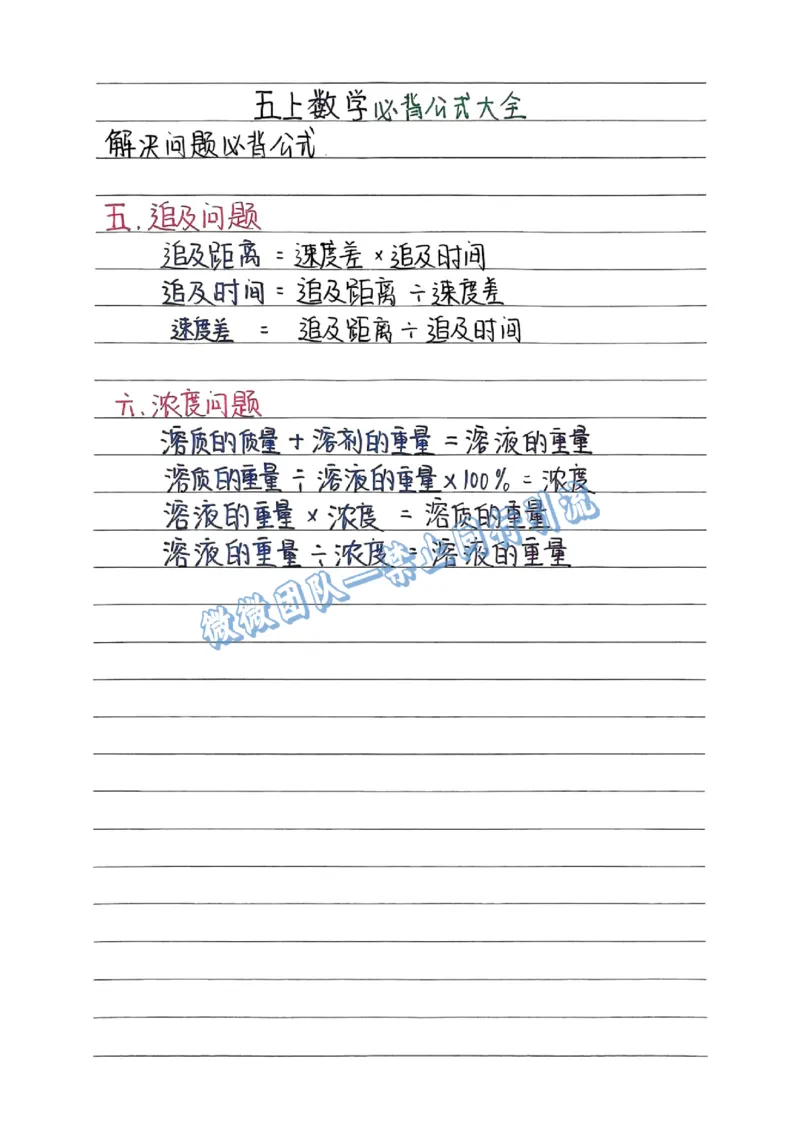 五上数学必背公式大全
解决问题必背公式
五.追及问题
追及距离=速度差×追及时间
追及时间=追及距离÷速度差
速度差=追及距离÷追及时间
六.浓度问题
溶质的质量+溶剂的重量=溶液的重量
溶质的重量÷溶液的重量×100%=浓度
溶液的重量×浓度=溶质的重量
溶液的重量÷浓度=溶液的重量
微微团队一禁止同行引流